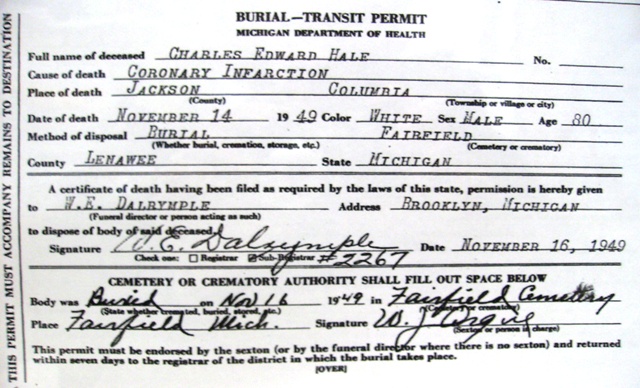 BURIAL—TRANSIT PERMIT
MICHIGAN DEPARTMENT OF HEALTH
Full name of deceased CHARLES EDWARD HALE No.
Cause of death CORONARY INFARCTION
Place of death JACKSON COLUMBIA
(County) (Township or village or city)
Date of death NOVEMBER 14 1949 Color WHITE Sex MALE Age 80
Method of disposal BURIAL FAIRFIELD
(Whether burial, cremation, storage, etc.) (Cemetery or crematory)
County LENAWEE State MICHIGAN
A certificate of death having been filed as required by the laws of this state, permission is hereby given
to W.E. DALRYMPLE Address BROOKLYN, MICHIGAN
(Funeral director or person acting as such)
to dispose of body of said deceased.
Signature W. E. Dalrymple Date NOVEMBER 16, 1949
Check one: Registrar Sub-Registrar #2267
CEMETERY OR CREMATORY AUTHORITY SHALL FILL OUT SPACE BELOW
Body was Buried on Nov 16 1949 in Fairfield Cemetery
(State whether cremated, buried, stored, etc.) (Cemetery or crematory)
Place Fairfield Mich. Signature W. J.
(Sexton or person in charge)
This permit must be endorsed by the sexton (or by the funeral director where there is no sexton) and returned
within seven days to the registrar of the district in which the burial takes place.
[OVER]
THIS PERMIT MUST ACCOMPANY REMAINS TO DESTINATION